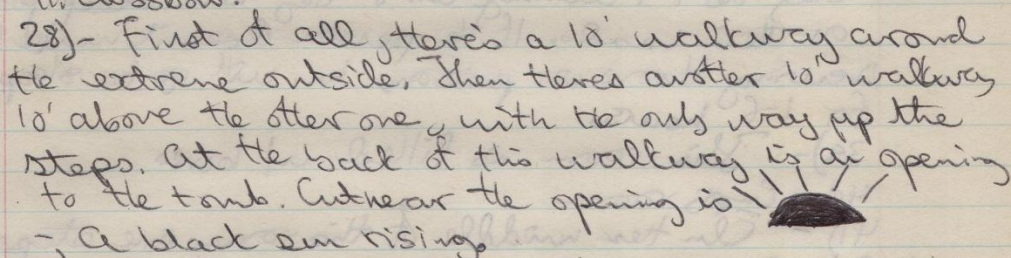 28)- First of all, there's a 10' walkway around
the extreme outside. Then theres another 10' walkway
10' above the other one, with the only way up the
steps. At the back of this walkway is an opening
to the tomb. Cut near the opening is
-, a black sun rising.